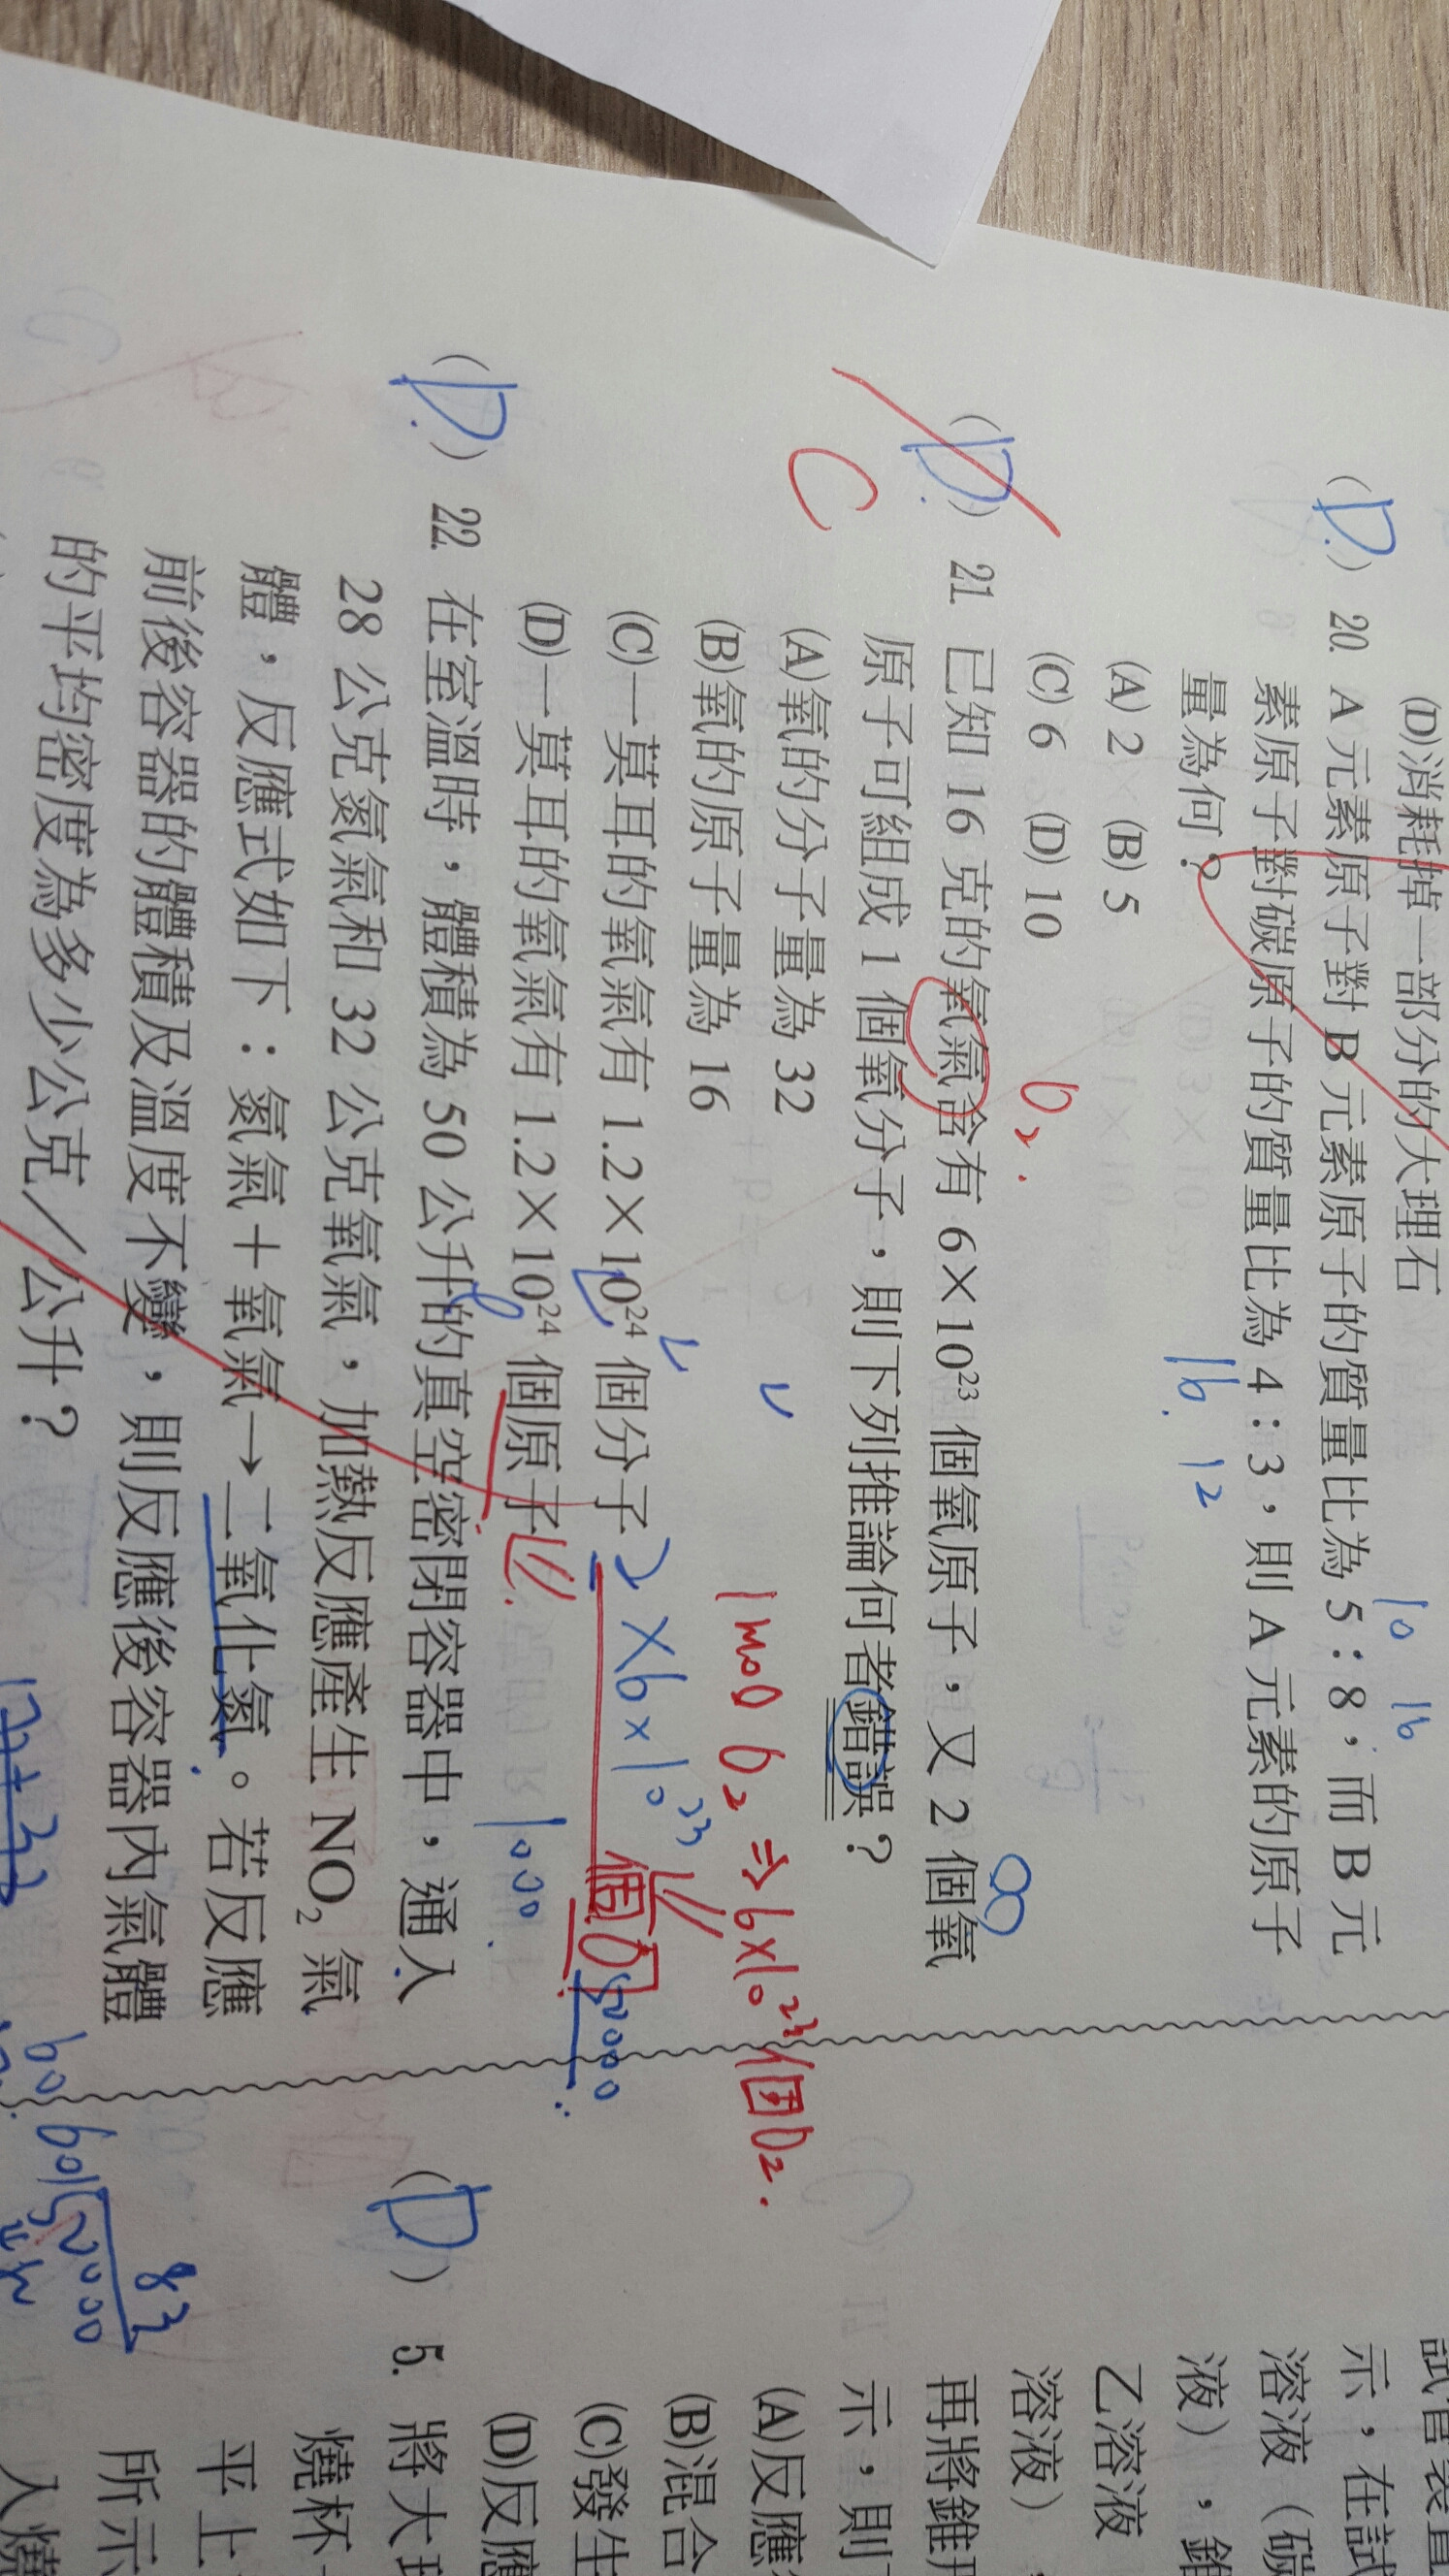 (D)消耗掉一部分的大理石
(D.) 20. A 元素原子對 B 元素原子的質量比為 5：8，而 B 元
10 16
素原子對碳原子的質量比為 4：3，則 A 元素的原子
16. 12
量為何？
(A) 2 (B) 5
(C) 6 (D) 10
O₂.
(D.) 21. 已知 16 克的氧氣含有 6×10²³ 個氧原子，又 2 個氧
C
原子可組成 1 個氧分子，則下列推論何者錯誤？
(A)氧的分子量為 32
(B)氧的原子量為 16
1 mol O₂ ⇒ 6×10²³個O₂.
(C)一莫耳的氧氣有 1.2×10²⁴ 個分子
2×6×10²³個O
(D)一莫耳的氧氣有 1.2×10²⁴ 個原子
1000.
(D.) 22. 在室溫時，體積為 50 公升的真空密閉容器中，通入
28 公克氮氣和 32 公克氧氣，加熱反應產生 NO₂ 氣
體，反應式如下：氮氣＋氧氣→二氧化氮。若反應
前後容器的體積及溫度不變，則反應後容器內氣體
的平均密度為多少公克／公升？
83
(D) 5. 將大理
燒杯
平上
所示
入燒
示，在試
溶液（碳
液），錐
乙溶液
溶液）
再將錐形
示，則
(A)反應
(B)混合
(C)發生
(D)反應